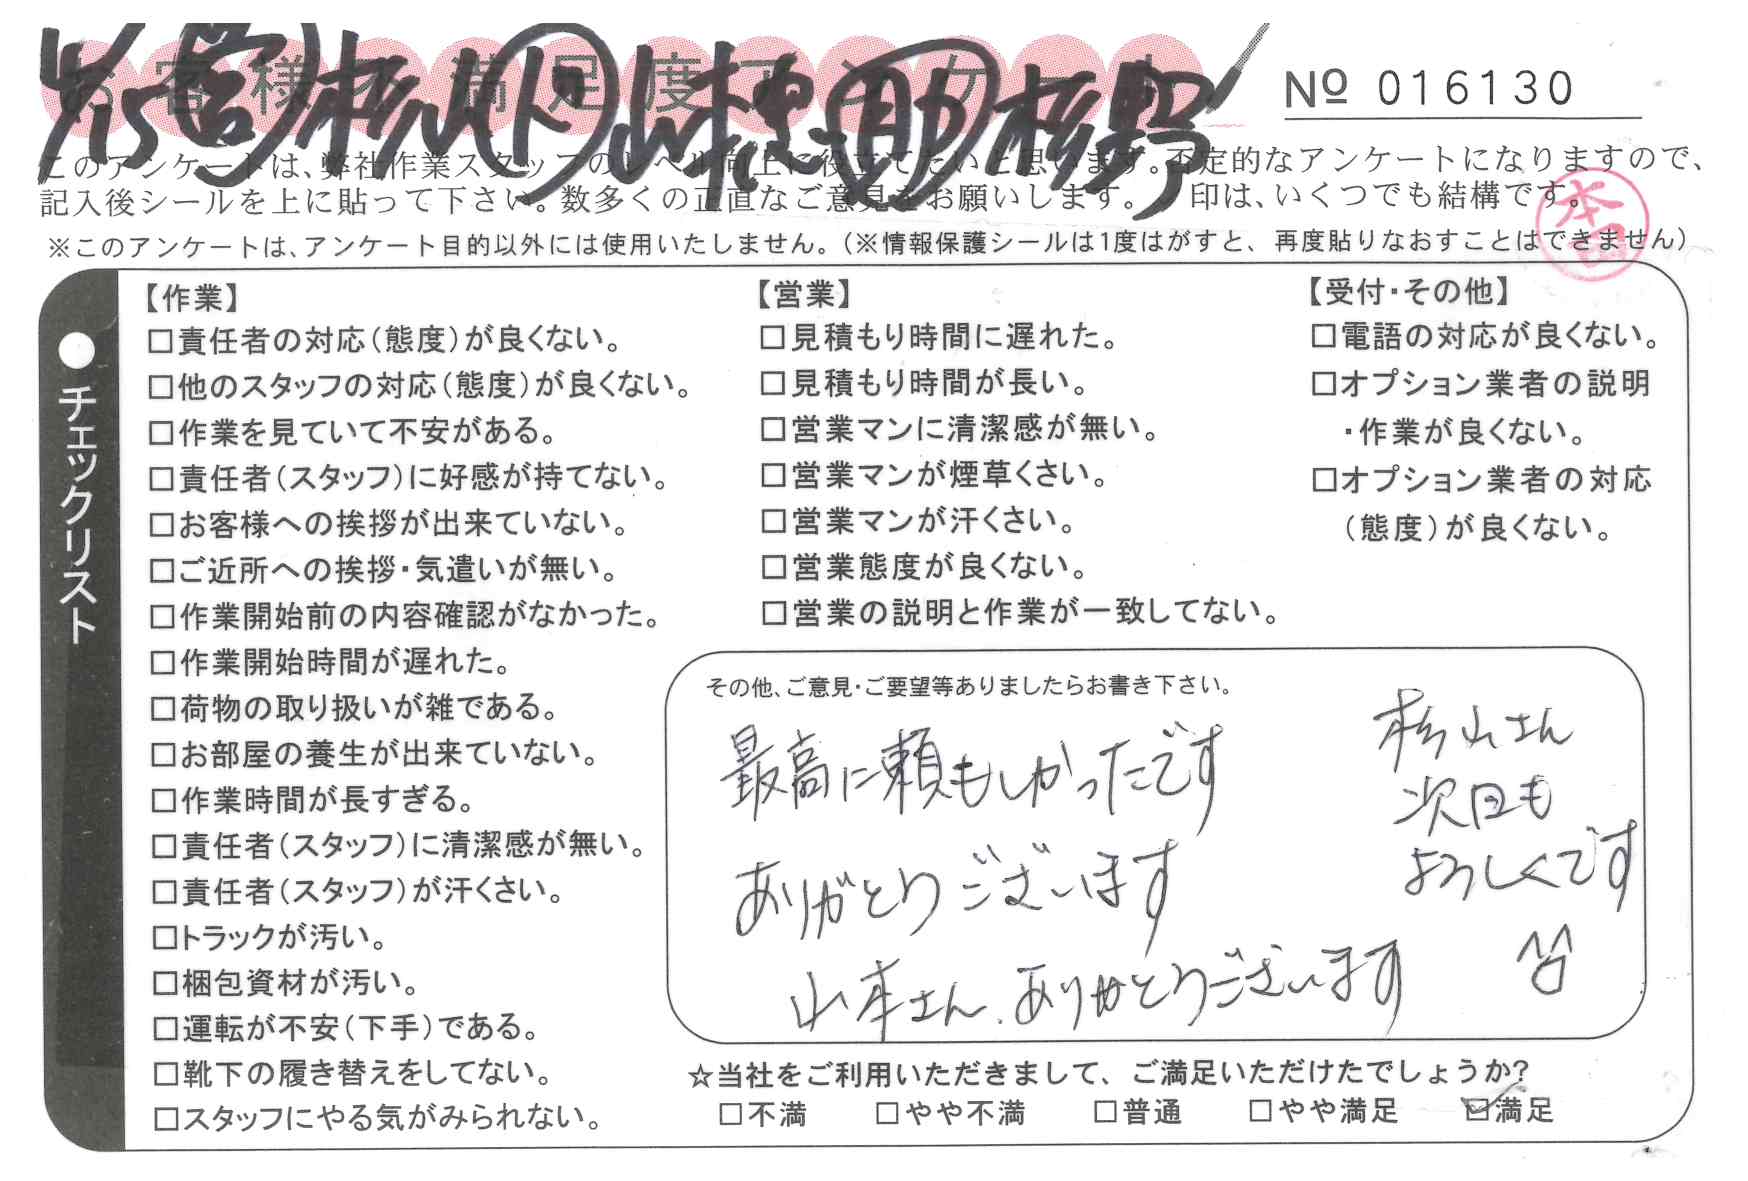 お客様 満足度アンケート
4/15 営 杉山 ト 山本 助 杉野
№ 016130
このアンケートは、弊社作業スタッフのレベル向上に役立てたいと思います。否定的なアンケートになりますので、
記入後シールを上に貼って下さい。数多くの正直なご意見をお願いします。 印は、いくつでも結構です。
※このアンケートは、アンケート目的以外には使用いたしません。(※情報保護シールは1度はがすと、再度貼りなおすことはできません)
本田
●チェックリスト
【作業】
□責任者の対応(態度)が良くない。
□他のスタッフの対応(態度)が良くない。
□作業を見ていて不安がある。
□責任者(スタッフ)に好感が持てない。
□お客様への挨拶が出来ていない。
□ご近所への挨拶・気遣いが無い。
□作業開始前の内容確認がなかった。
□作業開始時間が遅れた。
□荷物の取り扱いが雑である。
□お部屋の養生が出来ていない。
□作業時間が長すぎる。
□責任者(スタッフ)に清潔感が無い。
□責任者(スタッフ)が汗くさい。
□トラックが汚い。
□梱包資材が汚い。
□運転が不安(下手)である。
□靴下の履き替えをしてない。
□スタッフにやる気がみられない。
【営業】
□見積もり時間に遅れた。
□見積もり時間が長い。
□営業マンに清潔感が無い。
□営業マンが煙草くさい。
□営業マンが汗くさい。
□営業態度が良くない。
□営業の説明と作業が一致してない。
【受付・その他】
□電話の対応が良くない。
□オプション業者の説明
・作業が良くない。
□オプション業者の対応
(態度)が良くない。
その他、ご意見・ご要望等ありましたらお書き下さい。
最高に頼もしかったです
ありがとうございます
山本さん、ありがとうございます
杉山さん
次回も
よろしくです
☆当社をご利用いただきまして、ご満足いただけたでしょうか?
□不満 □やや不満 □普通 □やや満足 ☑満足